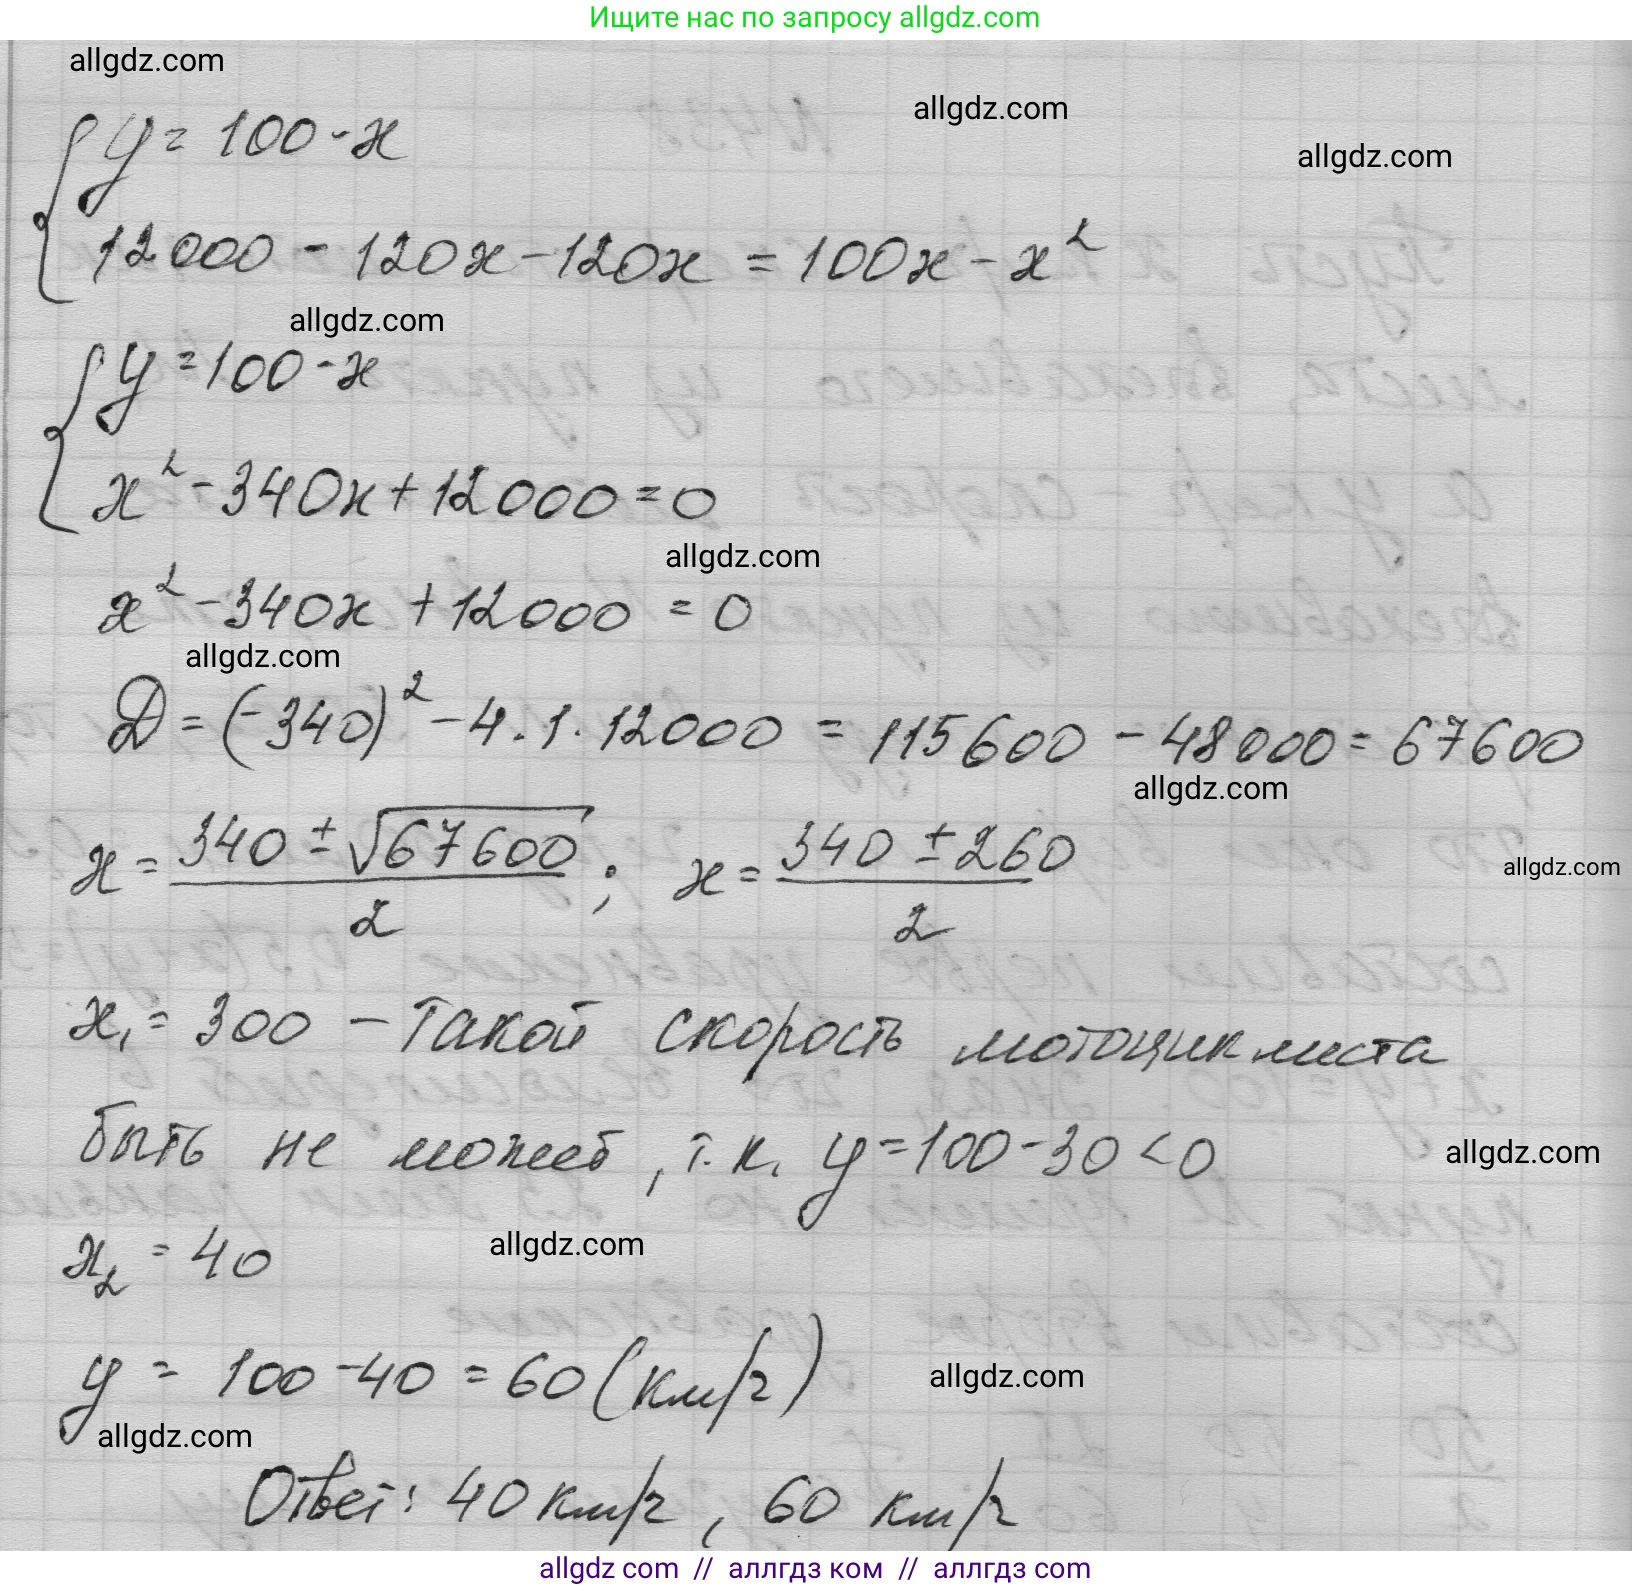 Ищите нас по запросу allgdz.com
allgdz.com
allgdz.com
y = 100 - x
allgdz.com
12000 - 120x - 120x = 100x - x²
allgdz.com
y = 100 - x
x² - 340x + 12000 = 0
allgdz.com
x² - 340x + 12000 = 0
allgdz.com
Д = (-340)² - 4 · 1 · 12000 = 115600 - 48000 = 67600
allgdz.com
x = (340 ± √67600)/2 ; x = (340 ± 260)/2
allgdz.com
x₁ = 300 - такой скорость мотоциклиста
быть не может, т.к. y = 100 - 30 < 0
allgdz.com
allgdz.com
x₂ = 40
y = 100 - 40 = 60 (км/ч)
allgdz.com
allgdz.com
Ответ: 40 км/ч, 60 км/ч
allgdz.com // аллгдз ком // аллгдз.com